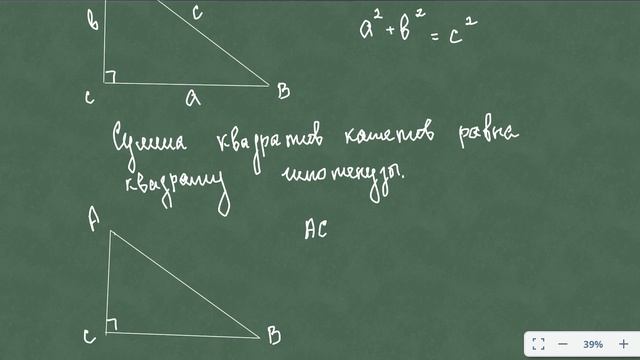 в c a² + в² = c²
C a B
Сумма квадратов катетов равна
квадрату гипотенузы.
A AC
C B
39%